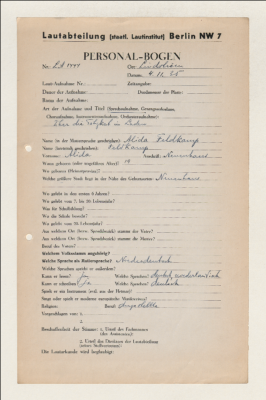 Lautabteilung (staatl. Lautinstitut) Berlin NW 7
PERSONAL-BOGEN
No. LA Ort:
Datum: 4.11.
Laut-Aufnahme No.: Zeitangabe:
Dauer der Aufnahme: Durchmesser der Platte:
Raum der Aufnahme:
Art der Aufnahme und Titel
Über die in
Name (in der Muttersprache geschrieben): Alida Feldkamp
Name (lateinisch geschrieben): Feldkamp
Vorname: Alida Neuenhaus
Wann geboren (oder ungefähres Alter)?
Wo geboren (Heimatgegend)?
Welche größere Stadt liegt in der Nähe des Geburtsortes: Neuenhaus
Wo gelebt in den ersten 6 Jahren?
Wo gelebt vom 7. bis 20. Lebensjahr?
Was für Schulbildung?
Wo die Schule besucht?
Wo gelebt vom 20. Lebensjahr?
Aus welchem Ort (Kreis, Sprachbezirk) stammt der Vater?
Aus welchem Ort (Kreis, Sprachbezirk) stammt die Mutter?
Beruf des Vaters?
Welchem Volksstamm angehörig?
Welche Sprache als Muttersprache? Niederdeutsch
Welche Sprachen spricht er außerdem?
Kann er lesen? Ja Welche Sprachen?
Kann er schreiben? Ja Welche Sprachen? Deutsch
Spielt er ein Instrument (evtl. aus der Heimat)?
Singt oder spielt er moderne europäische Musikweisen?
Religion: Beruf:
Vorgeschlagen von: 1.
2.
Beschaffenheit der Stimme: 1. Urteil des Fachmannes
(des Assistenten)
2. Urteil des Direktors der Lautabteilung
(seines Stellvertreters)
Die Lauturkunde wird beglaubigt: